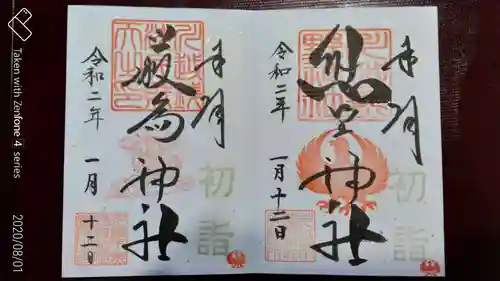 奉拝
熊野神社
令和二年
一月十二日
初詣
奉拝
厳島神社
令和二年
一月
十二日
初詣
Taken with Zenfone 4 series
2020/08/01